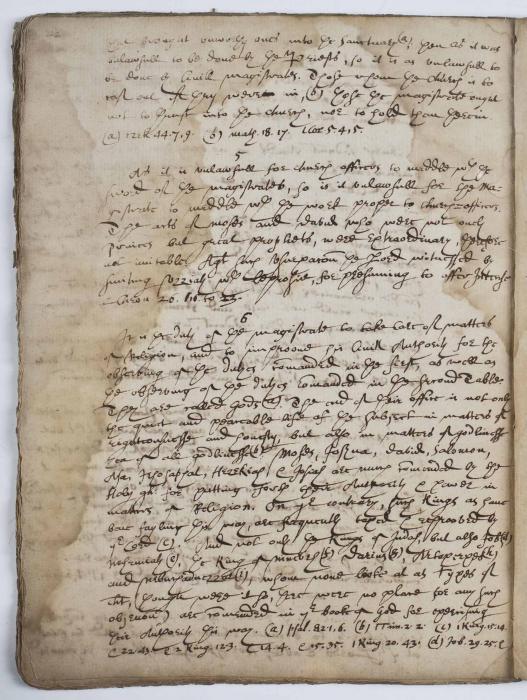 brought unworthy ones into the Sanctuary (a), then as it was
unlawfull to be done by the Priests, so it is as unlawfull to
be done by Civill magistrates. Those whom the Church is to
cast out if they were in, (b) those the magistrate ought
not to thrust into the Church, nor to hold them therein
(a) ezek 44.7.9. (b) math. 18.17. 1 Cor 5.4.5.
5
As it is unlawfull for church officers to meddle wth the
sword of the magistrates, so is it unlawfull for the Ma-
gistrate to meddle wth the work proper to church officers.
The acts of Moses and David who were not only
Princes but great Prophets, were extraordinary, therfore
not imitable. Agt such usurpation the Lord witnessed by
smiting Uzziah wth leprosie, for presuming to offer incense
Chron 26. 16. to
6
It is the duty of the magistrate to take care of matters
of Religion, and to improove his Civill Authority for the
observing of the dutyes comanded in the first, as well as
the observing of the dutyes comanded in the second Table
They are called gods (a) The end of their office is not only
the quiet and peaceable life of the subject in matters of
righteousnesse and honesty, but also in matters of godlinesse
yea of all godlinesse (b) Moses, Joshua, David, Salomon,
Asa, Jehosaphat, Hezekiah & Josiah are much comended by the
Holy gh: for putting forth their Authority & power in
matters of Religion. On ye contrary, such Kings as haue
been fayling this way, are frequently taxed & reprooved by
ye Lord (c). And not only the Kings of Judah, but also Job (d)
Nehemiah (e), the King of Niniveh (f) Darius (g), Artaxerxes (h)
and Nebuchadnezzar (i), whom none looke at as Types of
Cht, (though were it so, there were no place for any such
objection) are comended in ye booke of God for exercising
their Authority this way. (a) Psal. 82.1.6. (b) 1 Tim. 2.2. (c) 1 King. 15.14.
& 22.43. 2 King. 12.3. & 14.4. & 15.35. 1 King 20.43. (d) Job. 29.25. &